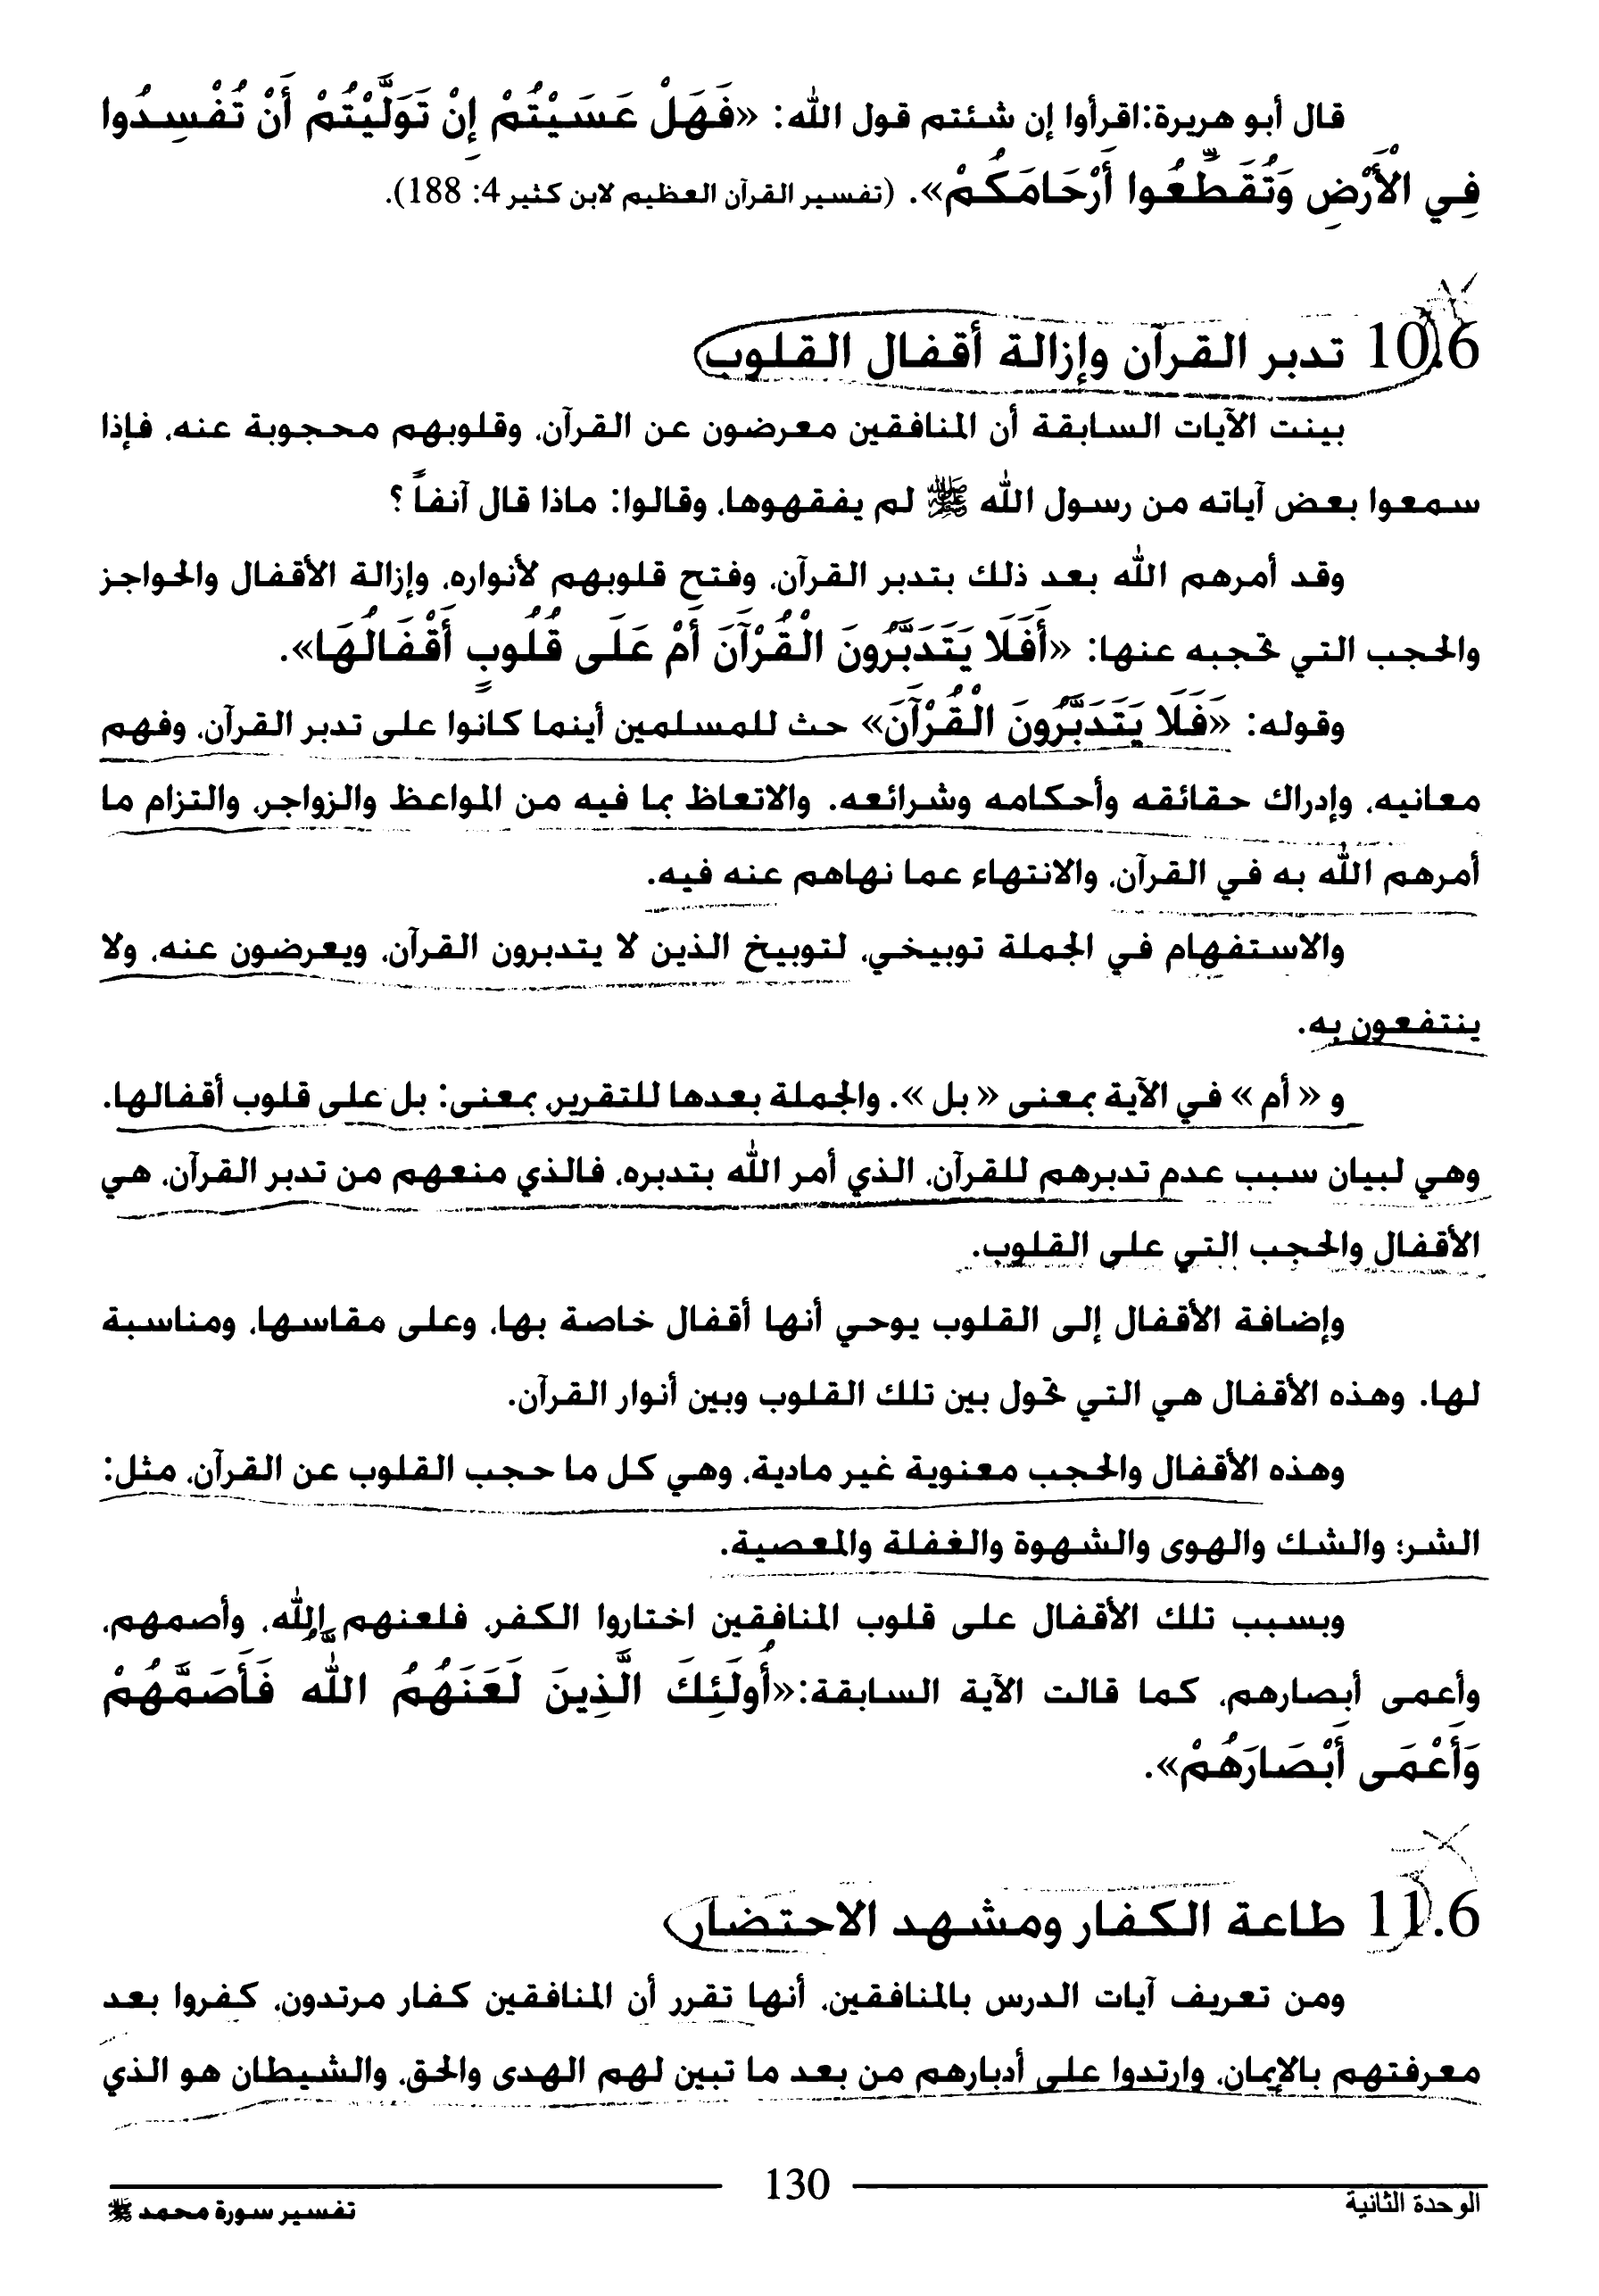 قال أبو هريرة:اقرأوا إن شئتم قول الله: «فَهَلْ عَسَيْتُمْ إِنْ تَوَلَّيْتُمْ أَنْ تُفْسِدُوا
فِي الْأَرْضِ وَتُقَطِّعُوا أَرْحَامَكُمْ». (تفسير القرآن العظيم لابن كثير 4: 188).
10.6 تدبر القرآن وإزالة أقفال القلوب
بينت الآيات السابقة أن المنافقين معرضون عن القرآن، وقلوبهم محجوبة عنه، فإذا
سمعوا بعض آياته من رسول الله ﷺ لم يفقهوها، وقالوا: ماذا قال آنفاً ؟
وقد أمرهم الله بعد ذلك بتدبر القرآن، وفتح قلوبهم لأنواره، وإزالة الأقفال والحواجز
والحجب التي تحجبه عنها: «أَفَلَا يَتَدَبَّرُونَ الْقُرْآنَ أَمْ عَلَى قُلُوبٍ أَقْفَالُهَا».
وقوله: «فَلَا يَتَدَبَّرُونَ الْقُرْآنَ» حث للمسلمين أينما كانوا على تدبر القرآن، وفهم
معانيه، وإدراك حقائقه وأحكامه وشرائعه. والاتعاظ بما فيه من المواعظ والزواجر، والتزام ما
أمرهم الله به في القرآن، والانتهاء عما نهاهم عنه فيه.
والاستفهام في الجملة توبيخي، لتوبيخ الذين لا يتدبرون القرآن، ويعرضون عنه، ولا
ينتفعون به.
و « أم » في الآية بمعنى « بل ». والجملة بعدها للتقرير، بمعنى: بل على قلوب أقفالها.
وهي لبيان سبب عدم تدبرهم للقرآن، الذي أمر الله بتدبره، فالذي منعهم من تدبر القرآن، هي
الأقفال والحجب التي على القلوب.
وإضافة الأقفال إلى القلوب يوحي أنها أقفال خاصة بها، وعلى مقاسها، ومناسبة
لها. وهذه الأقفال هي التي تحول بين تلك القلوب وبين أنوار القرآن.
وهذه الأقفال والحجب معنوية غير مادية، وهي كل ما حجب القلوب عن القرآن، مثل:
الشر؛ والشك والهوى والشهوة والغفلة والمعصية.
وبسبب تلك الأقفال على قلوب المنافقين اختاروا الكفر، فلعنهم الله، وأصمهم،
وأعمى أبصارهم، كما قالت الآية السابقة:«أُولَئِكَ الَّذِينَ لَعَنَهُمُ الله فَأَصَمَّهُمْ
وَأَعْمَى أَبْصَارَهُمْ».
11.6 طاعة الكفار ومشهد الاحتضار
ومن تعريف آيات الدرس بالمنافقين، أنها تقرر أن المنافقين كفار مرتدون، كفروا بعد
معرفتهم بالإيمان، وارتدوا على أدبارهم من بعد ما تبين لهم الهدى والحق، والشيطان هو الذي
الوحدة الثانية
130
تفسير سورة محمد ﷺ